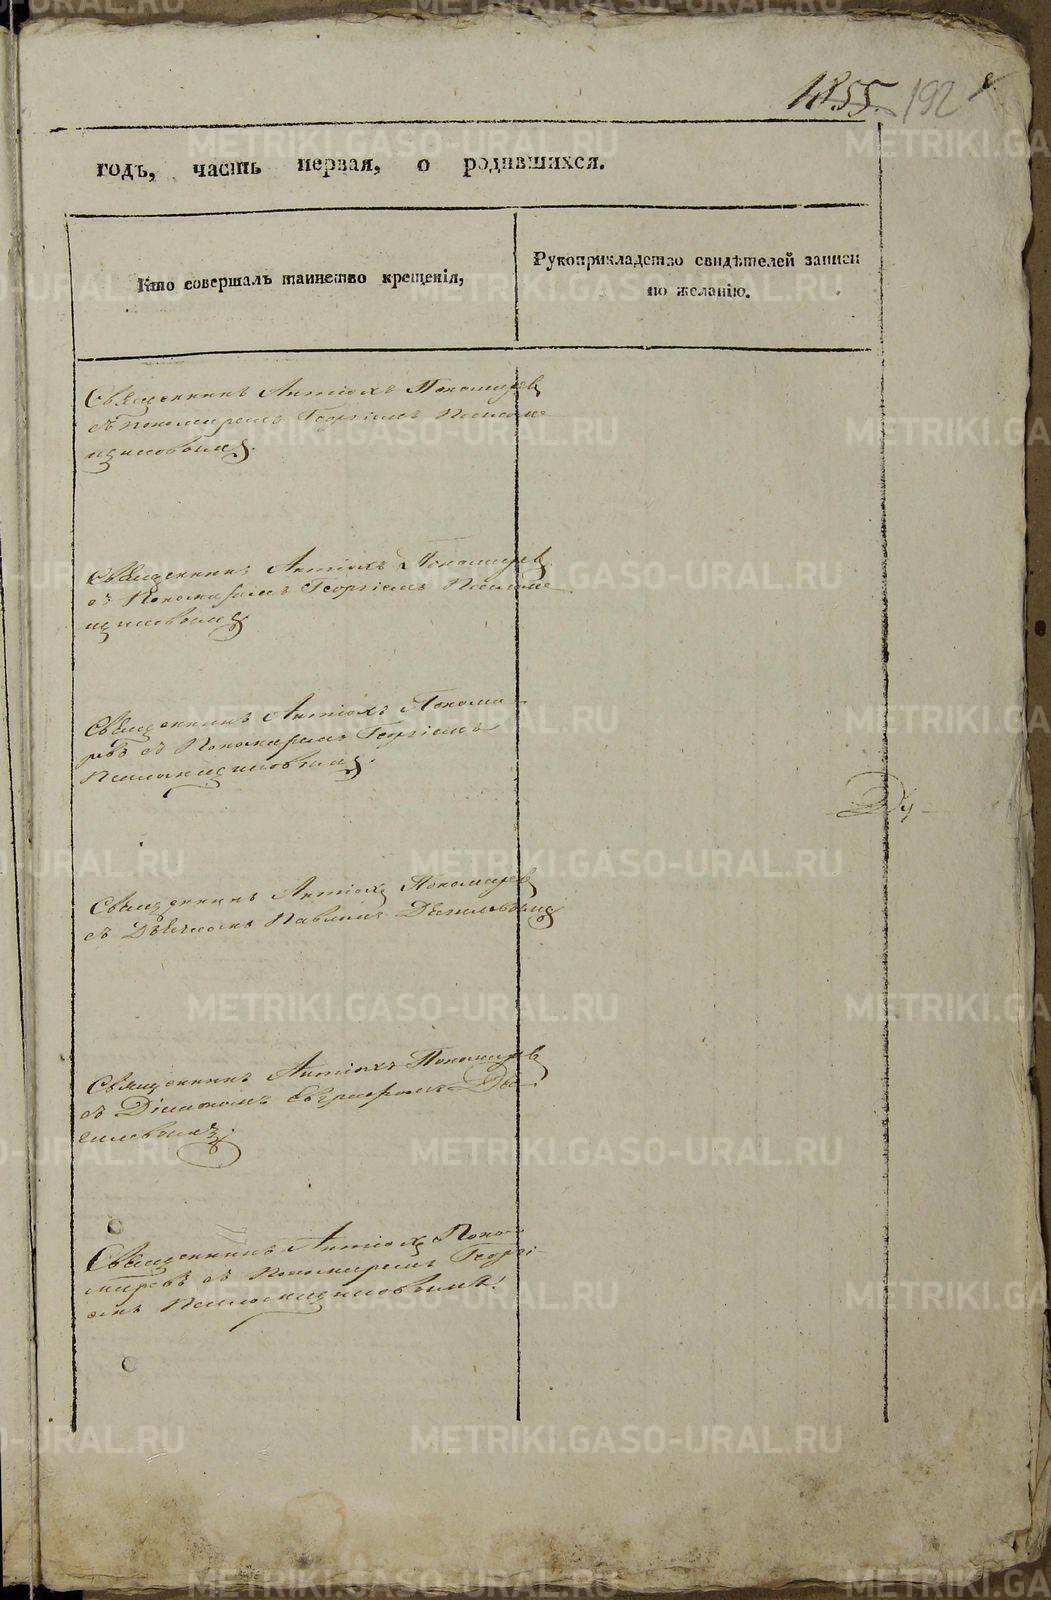 1855. 192
годъ, часть первая, о родившихся.
Кто совершалъ таинство крещенія,
Рукоприкладство свидѣтелей записи
по желанію.
Священникъ Антіохъ Пономаревъ
съ Пономаремъ Георгіемъ
Священникъ Антіохъ Пономаревъ
съ Пономаремъ Георгіемъ
Священникъ Антіохъ Понома
ревъ съ Пономаремъ Георгіемъ
Священникъ Антіохъ Пономаревъ
съ Дьячкомъ Павломъ
Священникъ Антіохъ Пономаревъ
съ Діакономъ Евграфомъ
Священникъ Антіохъ Поно-
маревъ съ Пономаремъ Георгі-
емъ
METRIKI.GASO-URAL.RU